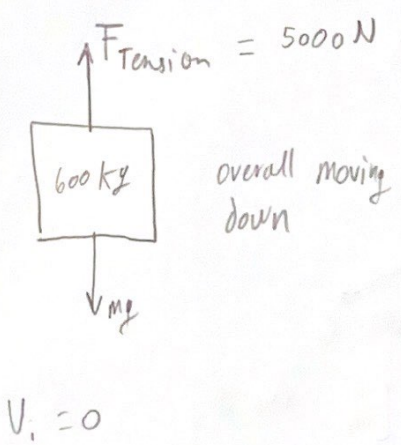 F Tension = 5000 N
600 kg
overall moving
down
mg
Vi = 0